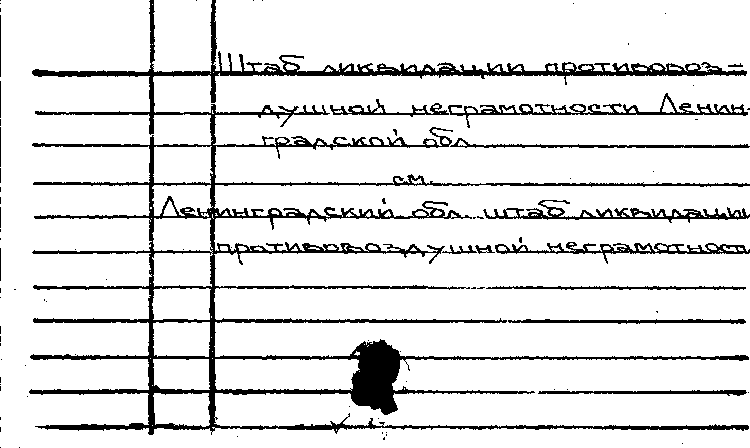 Штаб ликвидации противовоз-
душной неграмотности Ленин-
градской обл.
см.
Ленинградский обл. штаб ликвидации
противовоздушной неграмотности